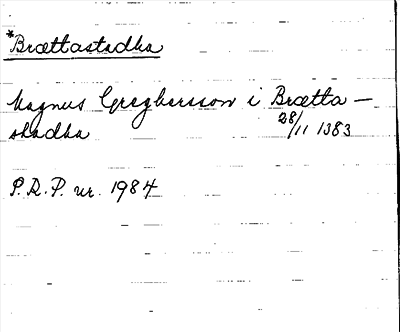 *Brættastadha
Magnus Greghersson i Brætta-
stadha 28/11 1383
P.R.P. nr. 1984